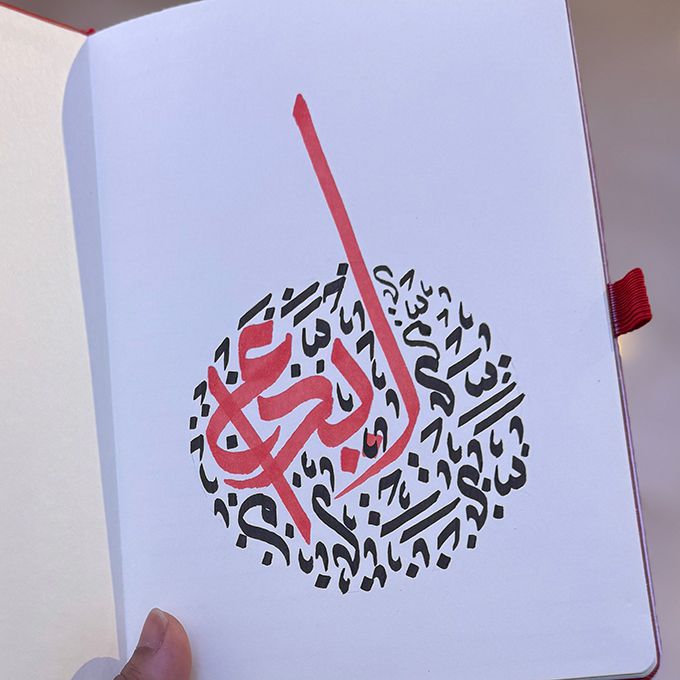 ابداع